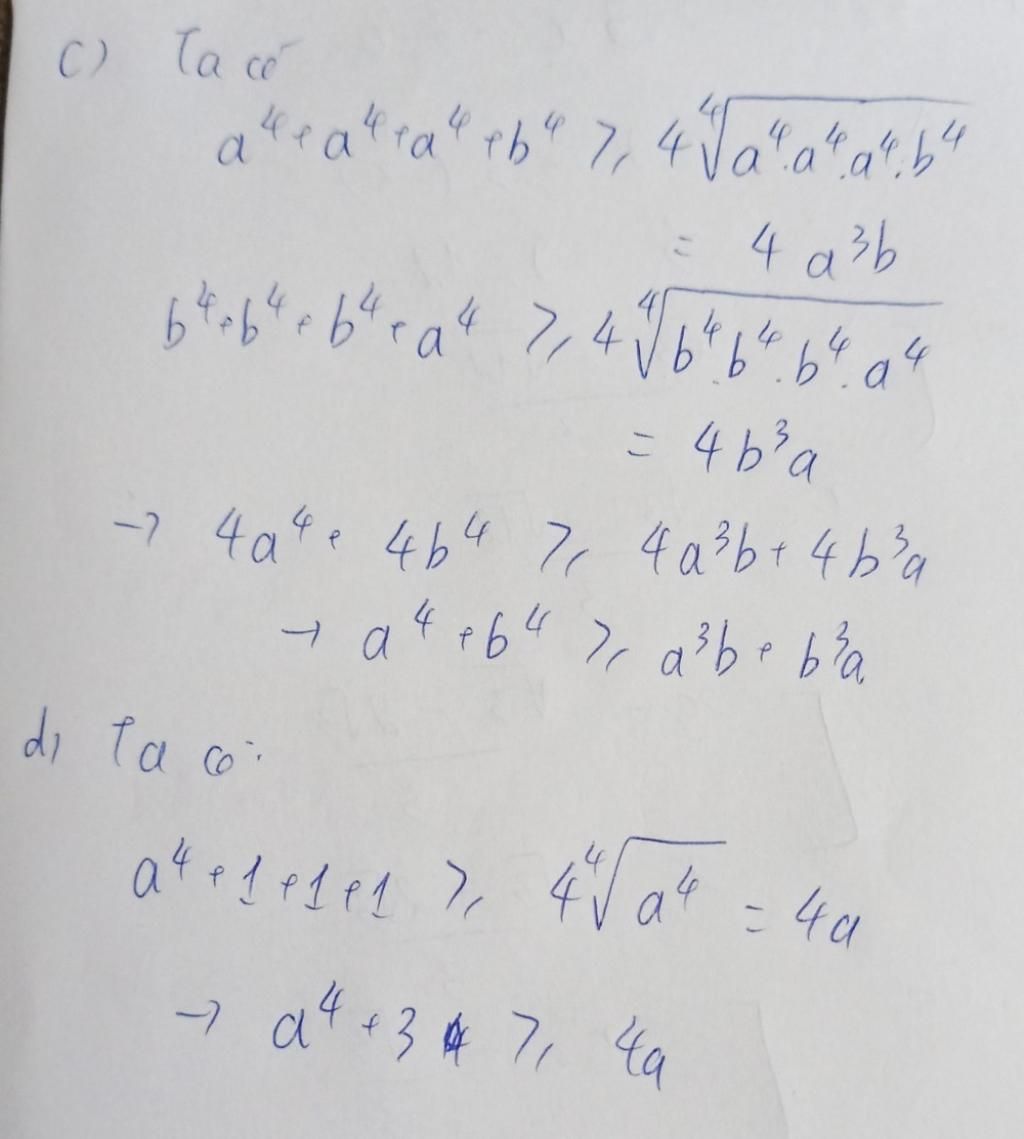 c) Ta có
a⁴ + a⁴ + a⁴ + b⁴ ≥ 4∜(a⁴.a⁴.a⁴.b⁴)
= 4a³b
b⁴ + b⁴ + b⁴ + a⁴ ≥ 4∜(b⁴.b⁴.b⁴.a⁴)
= 4b³a
→ 4a⁴ + 4b⁴ ≥ 4a³b + 4b³a
→ a⁴ + b⁴ ≥ a³b + b³a
d) Ta có:
a⁴ + 1 + 1 + 1 ≥ 4∜(a⁴) = 4a
→ a⁴ + 3 ≥ 4a